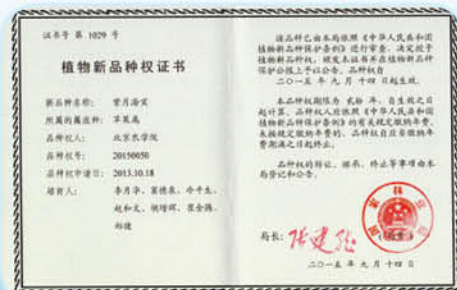 证书号 第 1029 号
植物新品种权证书
新品种名称：紫月海棠
所属的属或种：苹果属
品种权人：北京农学院
品种权号：20150050
品种权申请日：2013.10.18
培育人：李月华、窦德泉、冷平生、
赵和文、胡增辉、崔金腾、
郑健
该品种已由本局依照《中华人民共和国
植物新品种保护条例》进行审查，决定授予
植物新品种权，颁发本证书并在植物新品种
保护公报上予以公告。品种权自
二〇一五 年 九 月 十四 日起生效。
本品种权期限为 贰拾 年，自生效之日
起计算。品种权人应依照《中华人民共和国
植物新品种保护条例》的有关规定缴纳年费。
未按规定缴纳年费的，品种权自应当缴纳年
费期满之日起终止。
品种权的转让、继承、终止等事项由本
局登记和公告。
局长：张建龙
国家林业局
二〇一五 年 九 月 十四 日